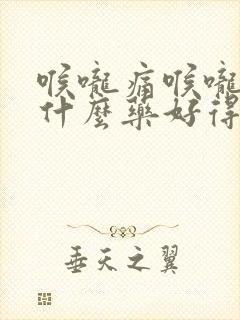 喉嚨痛喉嚨
什麼藥好得
垂天之翼